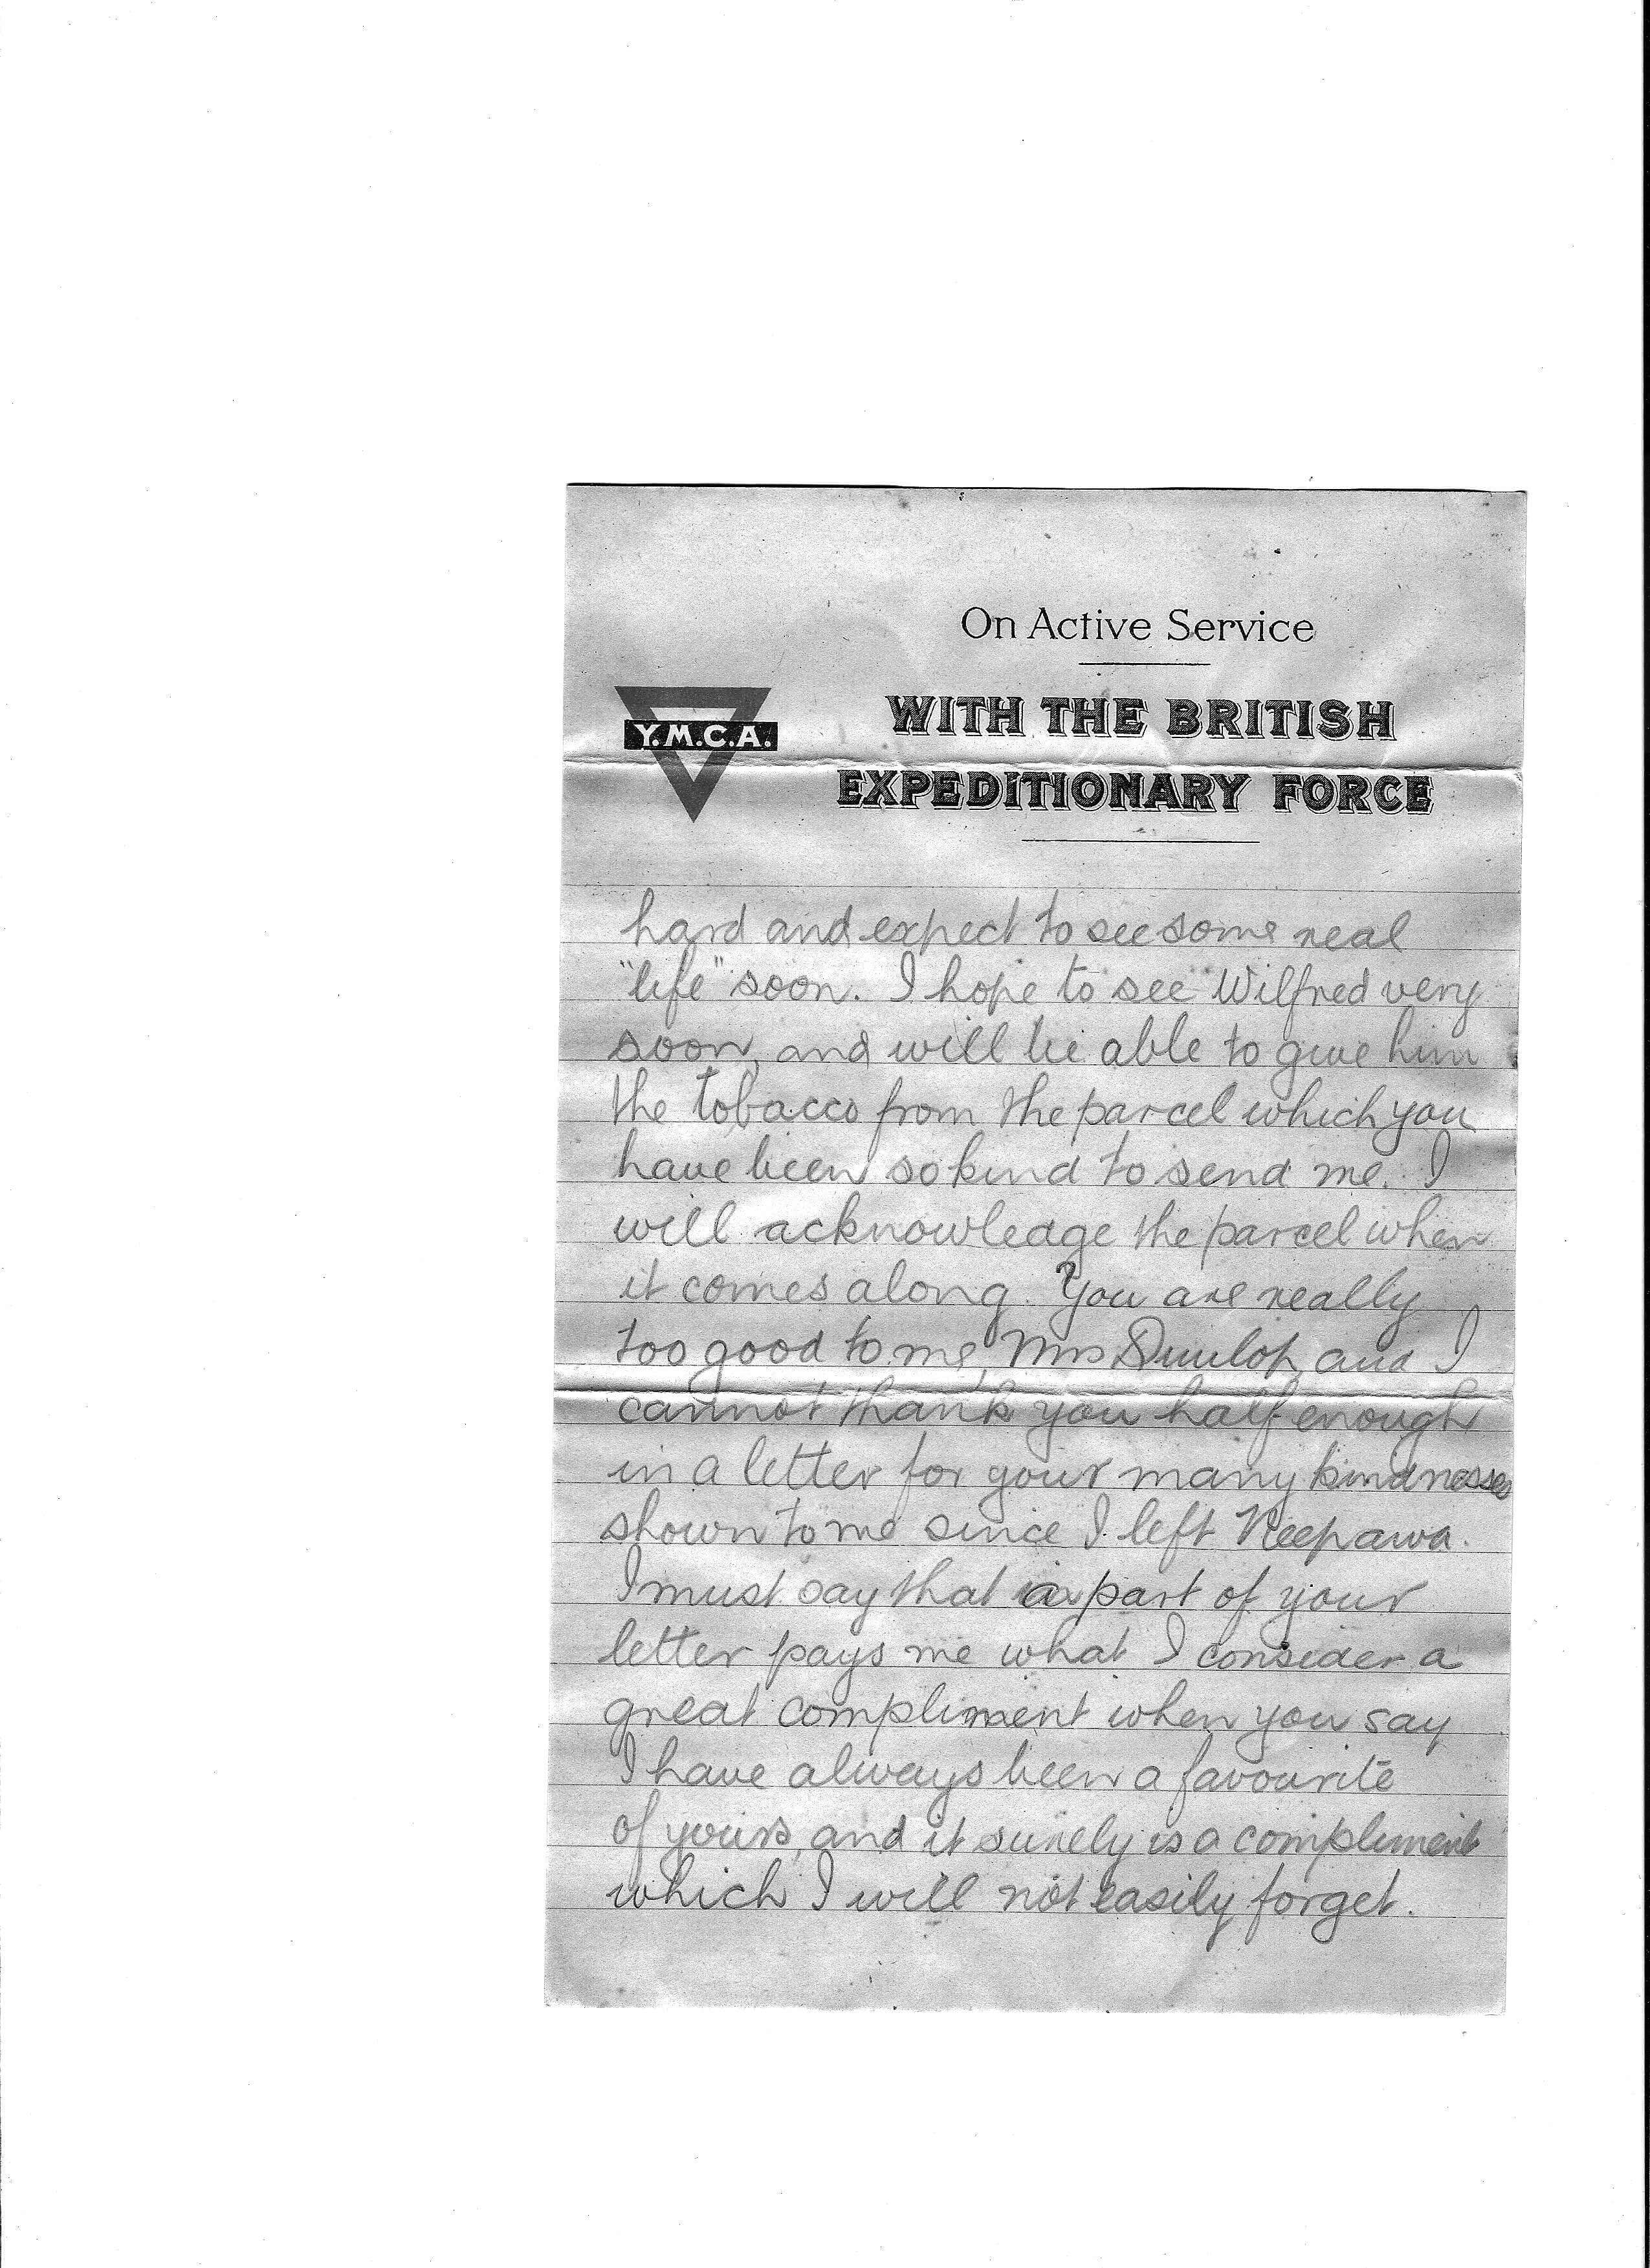 On Active Service
Y.M.C.A.
WITH THE BRITISH
EXPEDITIONARY FORCE
hard and expect to see some real
"life" soon. I hope to see Wilfred very
soon, and will be able to give him
the tobacco from the parcel which you
have been so kind to send me. I
will acknowledge the parcel when
it comes along. You are really
too good to me, Mrs Dunlop, and I
cannot thank you half enough
in a letter for your many kindnesses
shown to me since I left Neepawa.
I must say that a part of your
letter pays me what I consider a
great compliment when you say
I have always been a favourite
of yours, and it surely is a compliment
which I will not easily forget.